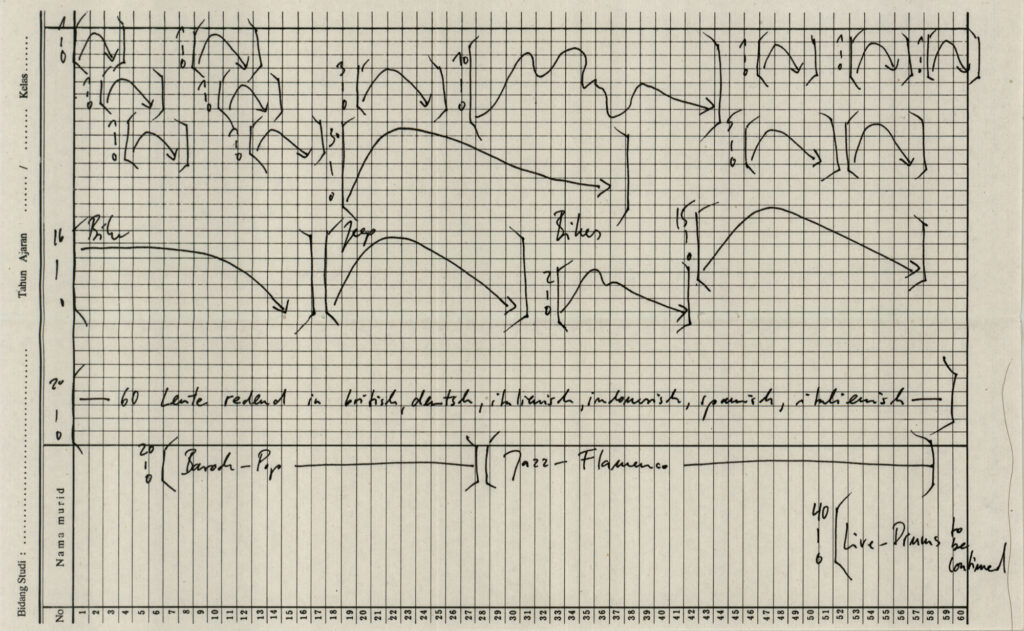 Bidang Studi : ........................ Tahun Ajaran ....... / ......... Kelas .......
1 - 0
1 - 0
1 - 0
1 - 0
1 - 0
1 - 0
3 - 0
10 - 0
1 - 0
1 - 0
1 - 0
30 - 0
5 - 0
16 - 0
Bike
Jeep
Bikes
2 - 0
15 - 0
20 - 0
60 Leute redend in britisch, deutsch, italienisch, indonesisch, spanisch, italienisch
20 - 0
Barock-Pop
Jazz-Flamenco
40 - 0
Live-Drums to be continued
Nama murid
No 1 2 3 4 5 6 7 8 9 10 11 12 13 14 15 16 17 18 19 20 21 22 23 24 25 26 27 28 29 30 31 32 33 34 35 36 37 38 39 40 41 42 43 44 45 46 47 48 49 50 51 52 53 54 55 56 57 58 59 60